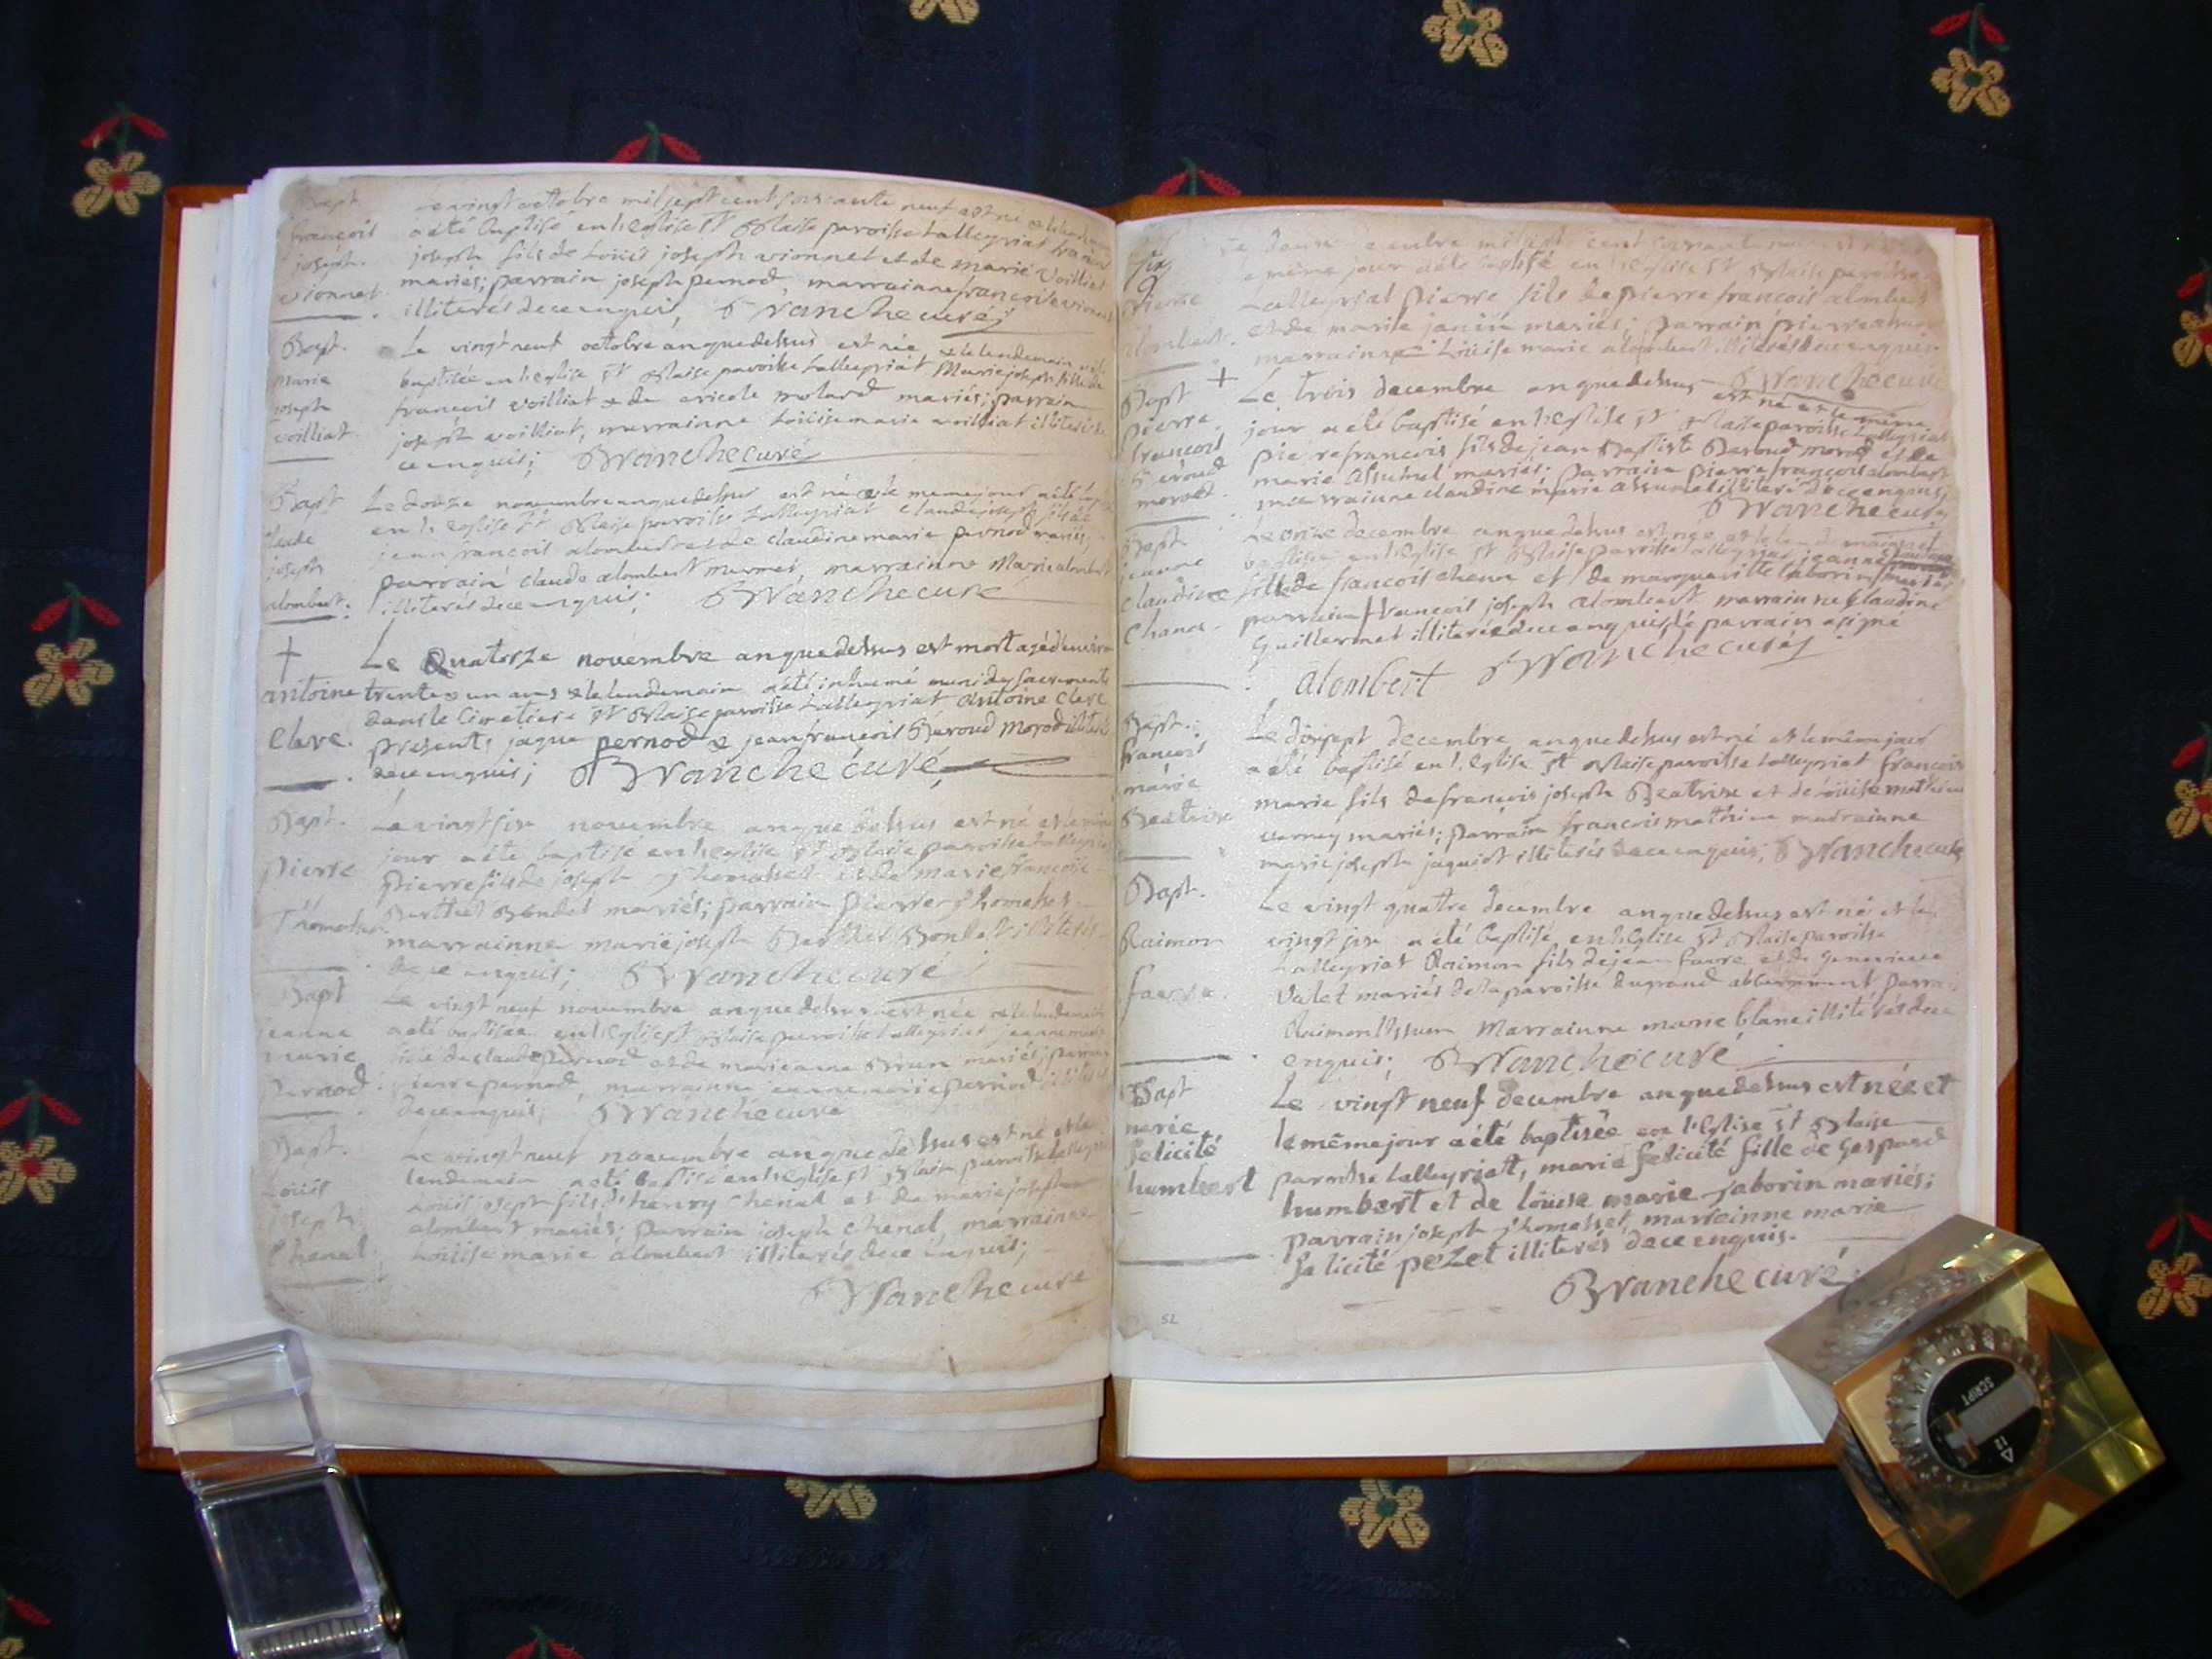 Bapt.
françois
joseph
vionnet.
Le vingt octobre mil sept cent soixante neuf est né & le lendemain
a été baptisé en l'eglise St Blaise paroisse Lalleyriat françois
joseph fils de Loüis joseph vionnet et de marie Voilliat
mariés; parrain joseph pernod, marrainne françoise vionnet
illiterés de ce enquis, Branche curé
Bapt.
marie
joseph
voilliat
Le vingt neuf octobre an que dessus est née & le lendemain
baptisée en l'eglise St Blaise paroisse Lalleyriat Marie joseph fille de
françois voilliat & de molard mariés; parrain
joseph voilliat, marrainne Loüise marie voilliat illiterés de
ce enquis; Branche curé
Bapt
claude
joseph
alombert.
Le douze novembre an que dessus est né & le meme jour a été
en l'eglise St Blaise paroisse Lalleyriat claude joseph fils de
jean françois alombert et de claudine marie pernod mariés,
parrain claude alombert marrainne Marie alombert
illiterés de ce enquis; Branche curé
†
antoine
Clerc.
Le Quatorze novembre an que dessus est mort agé d'environ
trente & un ans & le lendemain a été inhumé muni des sacrements
dans le Cimetiere St Blaise paroisse Lalleyriat Antoine Clerc
presents jaque pernod & jean françois Beroud Morod illiterés
de ce enquis; Branche curé
Bapt.
pierre
Thomasset
Le vingt six novembre an que dessus est né et le même
jour a été baptisé en l'eglise St Blaise paroisse Lalleyriat
Pierre fils de joseph Thomasset et de marie françoise
Berthet Bondet mariés; parrain Pierre Thomasset
marrainne marie joseph Berthet Bondet illiterés
de ce enquis; Branche curé
Bapt
jeanne
marie
Pernod
Le vingt neuf novembre an que dessus est née & le lendemain
a été baptisée en l'eglise St Blaise paroisse Lalleyriat jeanne marie
fille de claude pernod et de marie anne Brun mariés; parrain
pierre pernod, marrainne jeanne marie pernod illiterés
de ce enquis; Branche curé
Bapt.
Loüis
joseph
Chenal.
Le vingt neuf novembre an que dessus est né et le
lendemain a été baptisé en l'eglise St Blaise paroisse Lalleyriat
Loüis joseph fils d'henry Chenal et de marie joseph
alombert mariés; parrain joseph Chenal, marrainne
Loüise marie alombert illiterés de ce enquis;
Branche curé
six
Pierre
alombert.
Le deux decembre mil sept cent soixante neuf est né
le même jour a été baptisé en l'eglise St Blaise paroisse
Lalleyriat Pierre fils de pierre françois alombert
et de marie janin mariés; parrain pierre
marrainne Loüise marie alombert illiterés de ce enquis.
Branche curé
Bapt +
pierre
françois
Beroud
morod.
Le trois decembre an que dessus est né et le même
jour a été baptisé en l'eglise St Blaise paroisse Lalleyriat
pierre françois fils de jean Baptiste Beroud morod et de
marie Assumel mariés; parrain pierre françois alombert
marrainne claudine marie assumel illiterés de ce enquis,
Branche curé
Bapt
jeanne
Claudine
Chanel.
Le onze decembre an que dessus est née et le lendemain a été
baptisée en l'eglise St Blaise paroisse Lalleyriat jeanne Claudine
fille de françois chenal et de marguerite jaborin mariés
parrain françois joseph alombert marrainne Claudine
Guillermet illiterée de ce enquis, le parrain a signé
alombert Branche curé
Bapt.
françois
marie
Beatrise
Le dixsept decembre an que dessus est né et le même jour
a été baptisé en l'eglise St Blaise paroisse Lalleyriat françois
marie fils de françois joseph Beatrise et de Loüise mathieu
verney mariés; parrain françois mathieu marrainne
marie joseph jaquiot illiterés de ce enquis; Branche curé
Bapt.
Raimon
favre.
Le vingt quatre decembre an que dessus est né et le
vingt six a été baptisé en l'eglise St Blaise paroisse
Lalleyriat Raimon fils de jean favre et de Genevieve
Valet mariés de la paroisse du grand abbergement Parrain
Raimon Marrainne marie blanc illiterés de ce
enquis; Branche curé
Bapt
marie
felicité
humbert
Le vingt neuf decembre an que dessus est née et
le même jour a été baptisée en l'Eglise St Blaise
paroisse Lalleyriat, marie felicité fille de Gaspard
humbert et de Loüise marie jaborin mariés;
parrain joseph Thomasset, marrainne marie
felicité pezet illiterés de ce enquis.
Branche curé.
52
SCRIPT
12